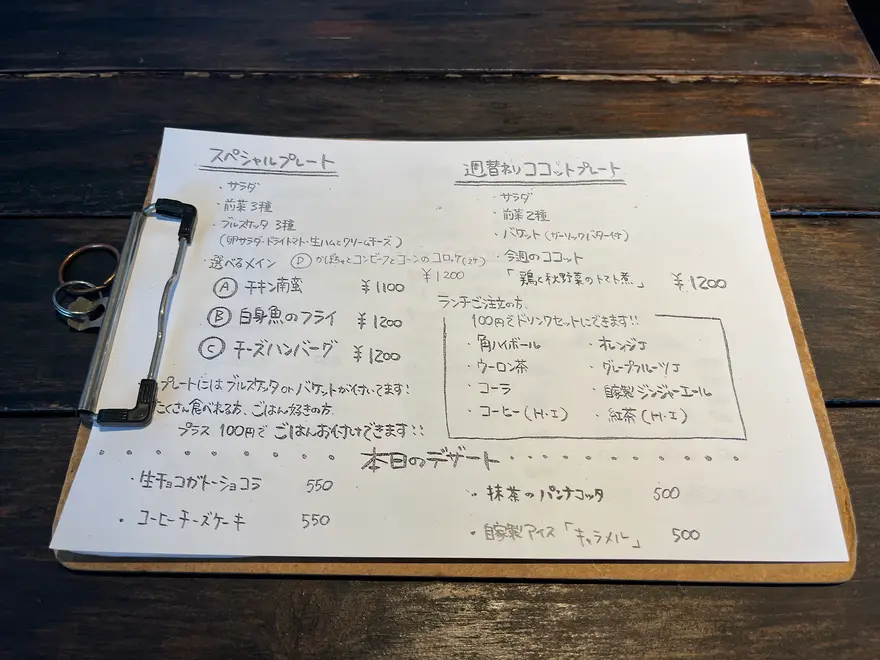 スペシャルプレート
・サラダ
・前菜3種
・ブルスケッタ 3種
(卵サラダ・ドライトマト・生ハムとクリームチーズ)
・選べるメイン Ⓓ かぼちゃとコンビーフとコーンのコロッケ ¥1200
Ⓐ チキン南蛮 ¥1100
Ⓑ 白身魚のフライ ¥1200
Ⓒ チーズハンバーグ ¥1200
プレートにはブルスケッタorバケットが付いてます!
たくさん食べれる方、ごはん好きの方、
プラス100円でごはんお付けできます!!
週替わりココットプレート
・サラダ
・前菜2種
・バケット(ガーリックバター付)
・今週のココット
「鶏と秋野菜のトマト煮」 ¥1200
ランチご注文の方、
100円でドリンクセットにできます!!
・角ハイボール ・オレンジJ
・ウーロン茶 ・グレープフルーツJ
・コーラ ・自家製ジンジャーエール
・コーヒー(H・I) ・紅茶(H・I)
本日のデザート
・生チョコガトーショコラ 550
・コーヒーチーズケーキ 550
・抹茶のパンナコッタ 500
・自家製アイス「キャラメル」 500